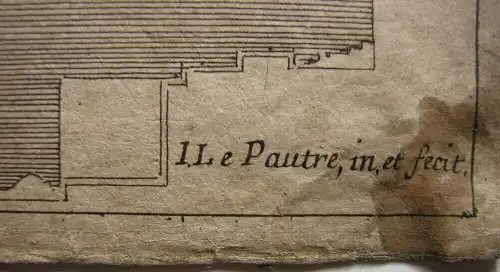 I. Le Pautre, in, et fecit.